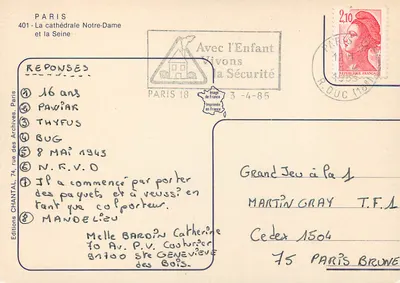 PARIS
401 - La cathédrale Notre-Dame
et la Seine
Avec l'Enfant
Vivons
la Sécurité
PARIS 18
3 -4-85
2,10
REPUBLIQUE FRANÇAISE
PARIS
R. DUC (18E)
Image de France
Imprimée en France
Editions CHANTAL, 74, rue des Archives, Paris
REPONSES
① 16 ans
② PAWIAK
③ THYFUS
④ BUG
⑤ 8 MAI 1943
⑥ N.K.V.D
⑦ Il a commencé par porter
des paquets, et a réussi en
tant que colporteur.
⑧ MANDELIEU
Melle BARDIN Catherine
70 Av. P.V. Couturier
91700 Ste GENEVIEVE
des Bois.
Grand Jeu à la 1
MARTIN GRAY T.F.1
Cedex 1504
75 PARIS BRUNE